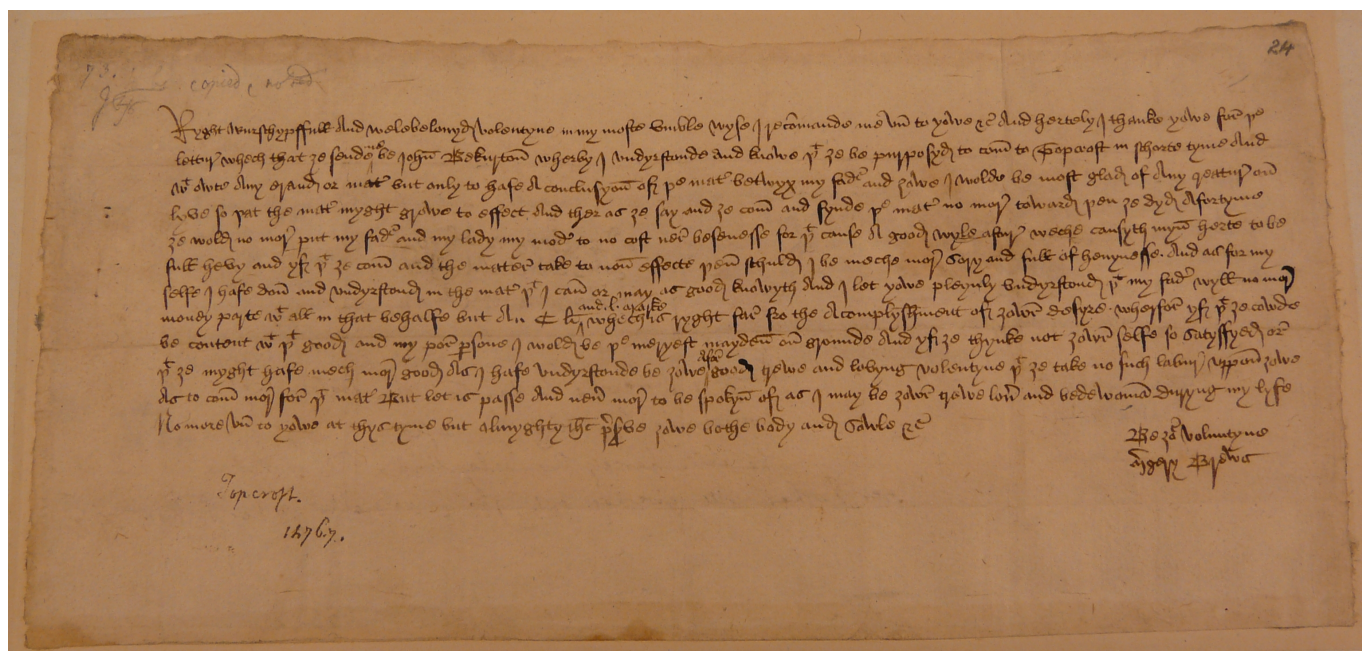 24
copied, noted
Ryght wurschypffull And welebelovyd volentyne in my moste vmble wyse I recomande me vn to yowe &c And hertely I thanke yowe for þe
lettur whech that ȝe sende me be John Bekurton wherby I vndyrstonde and knowe þt ȝe be purposyd to com to Topcroft in schorte tyme And
wt owte Any erand or mater but only to hafe A conclusyon of þe mater betwyx my fader and ȝowe I wolde be most glad of Any creatur on
lyve so þat the mater myght growe to effect And ther as ȝe say and ȝe com and fynde þe mater no mor toward þen ȝe dyd Afortyme
ȝe wold no mor put my fader and my lady my moder to no cost ner besenesse for þt cause A good wyle aftur weche causyth myn herte to be
full hevy and yf þt ȝe com and the matter take to non effecte þen schuld I be meche mor sory and full of hevynesse And as for my
selfe I hafe don and vndyrstond in the mater þt I can or may as good knowyth And I let yowe pleynly vndyrstond þt my fader wyll no mor
money parte wt all in that behalfe but An C li and l. marke whech is ryght far fro the Acomplyshment of ȝowr desyre wherfor yf þt ȝe cowde
be content wt þt good and my por persone I wold be þe meryest mayden on grounde And yf ȝe thynke not ȝowr selfe so satysfyed or
þt ȝe myght hafe mech mor good As I hafe vndyrstonde be ȝowe afor good trewe and lovyng volentyne þt ȝe take no such labur vppon ȝowe
As to com mor for þt mater But let is passe And never mor to be spokyn of as I may be ȝowr trewe lover and bedewoman duryng my lyfe
No more vn to yowe at thys tyme but Almyghty Jhc preserve ȝowe bothe body and sowle &c
Be ȝour voluntyne
Mergery Brews
Topcroft.
1476.7.